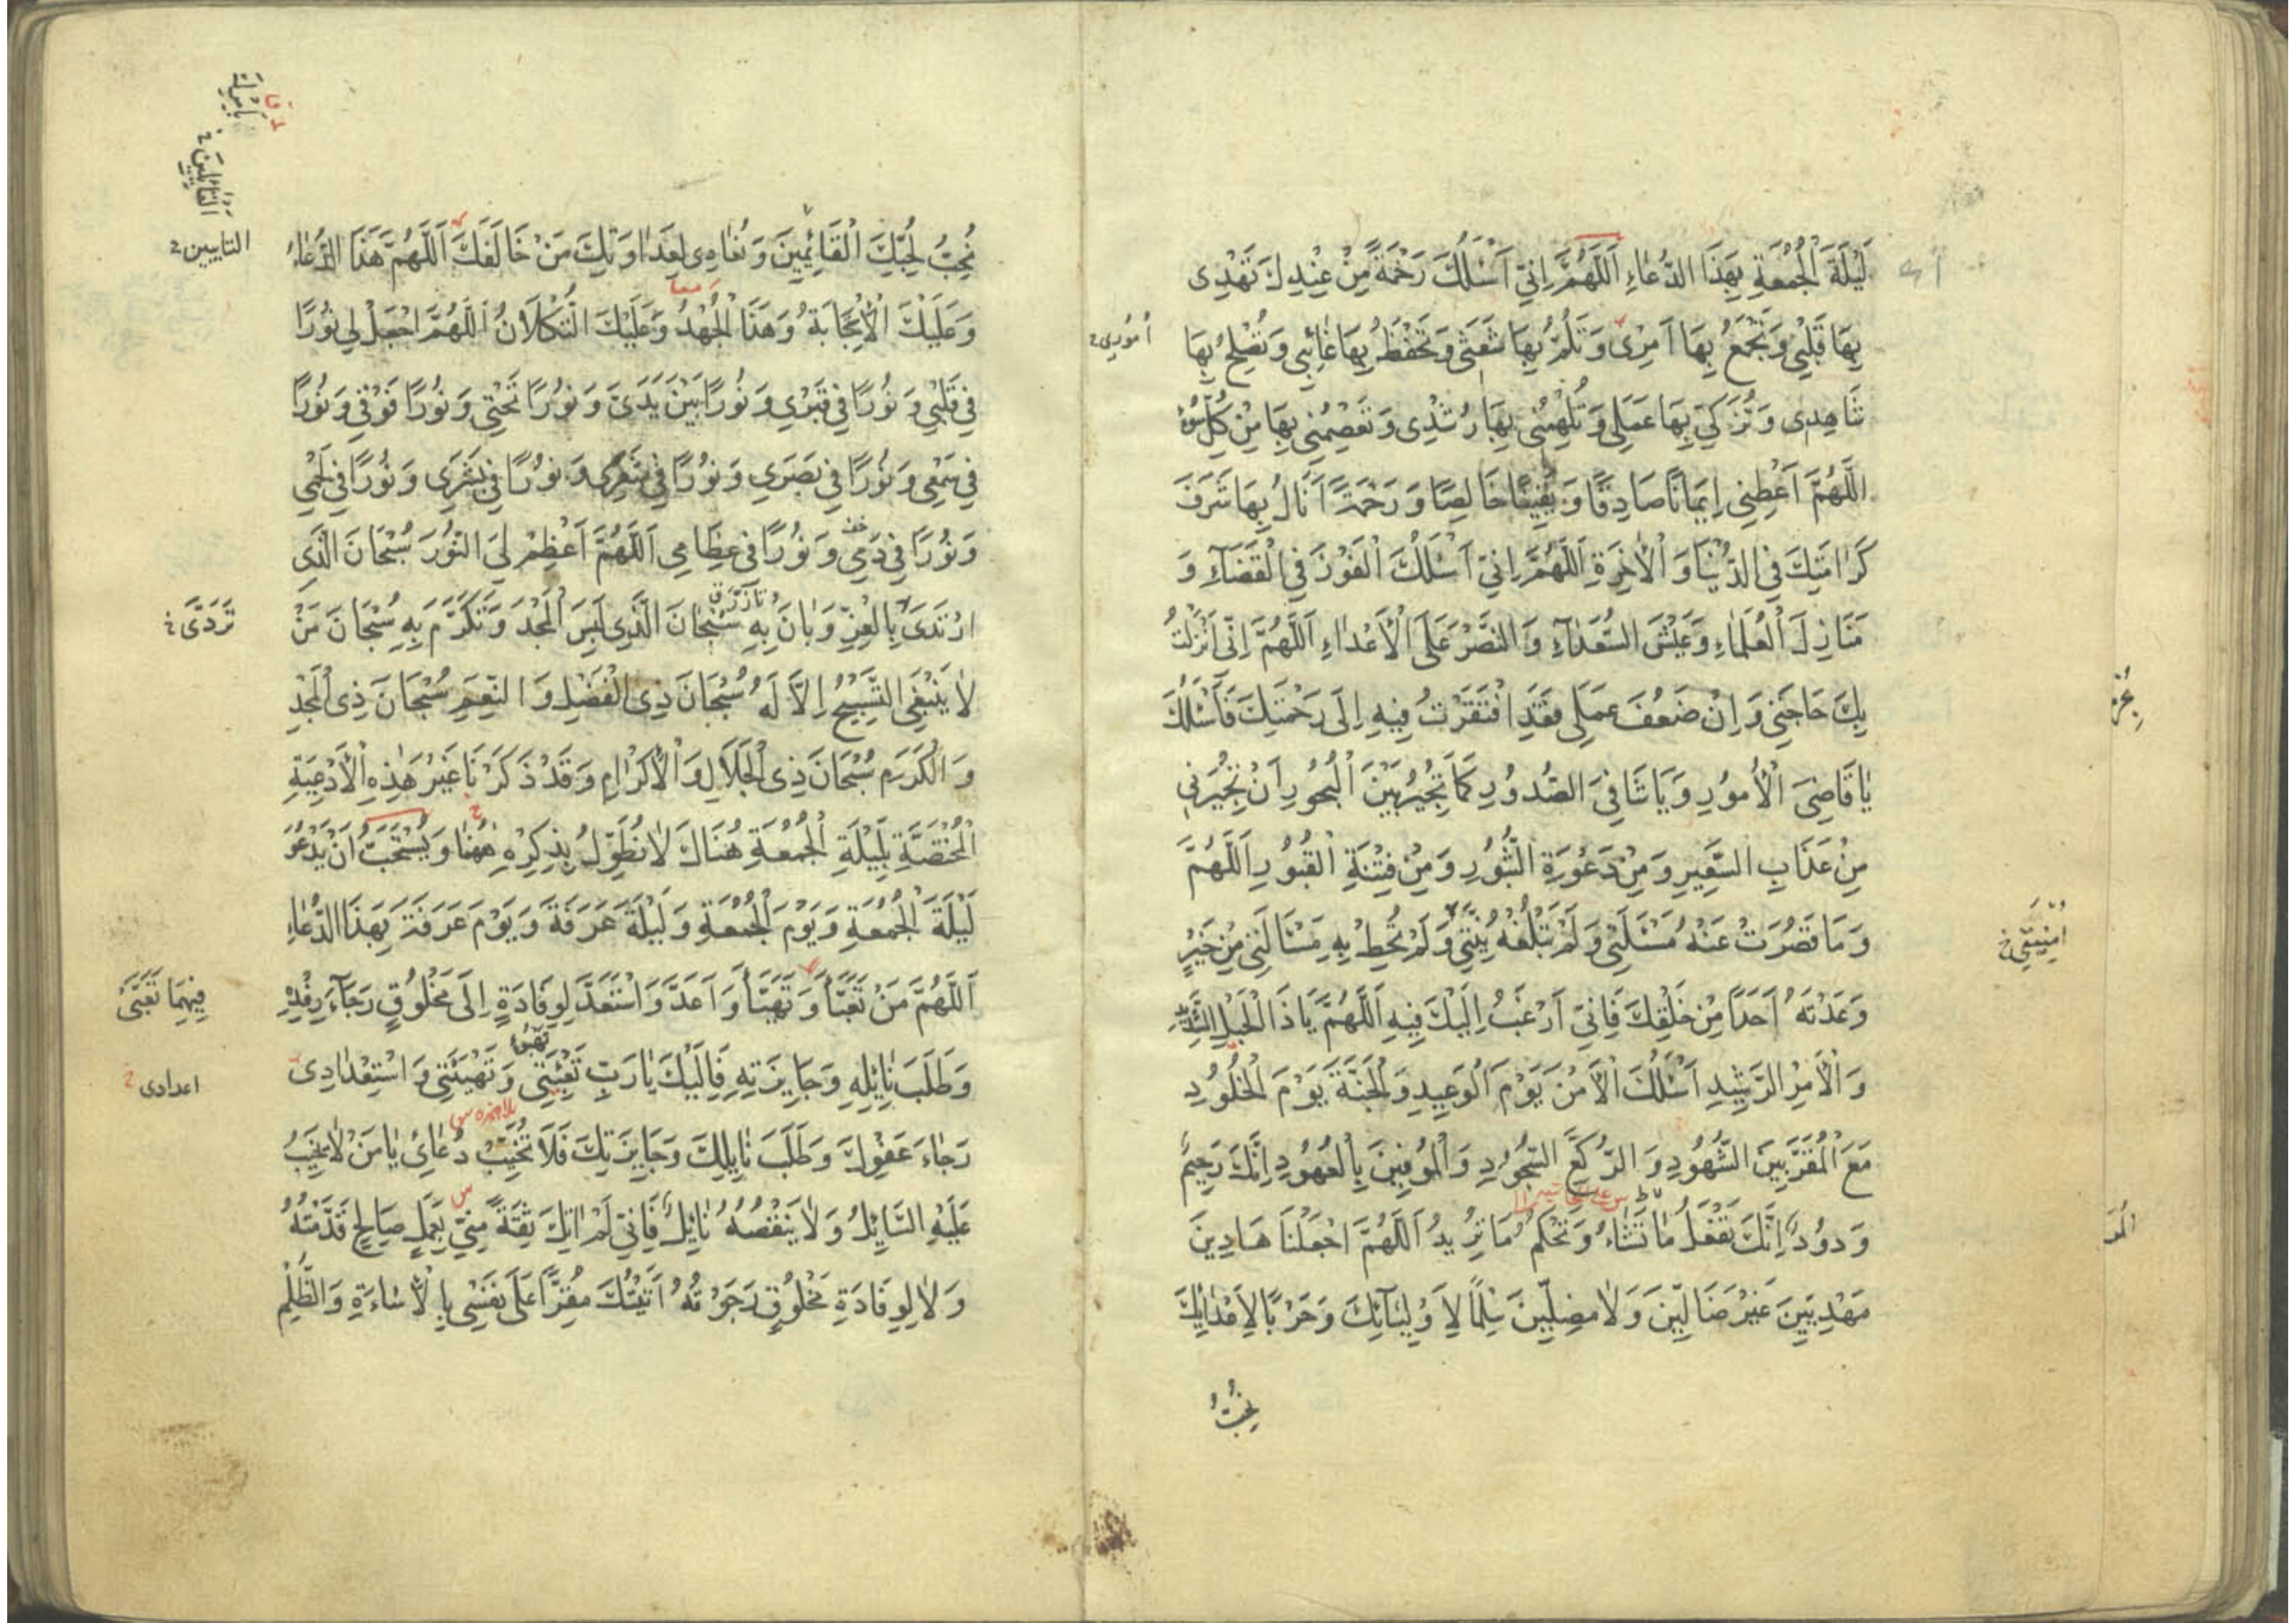 لَيْلَةَ الْجُمْعَةِ بِهَذَا الدُّعَاءِ اَللَّهُمَّ اِنِّي اَسْئَلُكَ رَحْمَةً مِنْ عِنْدِكَ تَهْدِى
بِهَا قَلْبِي وَتَجْمَعُ بِهَا اَمْرِى وَتَلُمُّ بِهَا شَعَثِي وَتَحْفَظُ بِهَا غَائِبِي وَتُصْلِحُ بِهَا
اُمُورِي
شَاهِدِى وَتُزَكِّي بِهَا عَمَلِي وَتُلْهِمُنِي بِهَا رُشْدِى وَتَعْصِمُنِي بِهَا مِنْ كُلِّ سُوءٍ
اللَّهُمَّ اَعْطِنِي اِيمَانًا صَادِقًا وَيَقِينًا خَالِصًا وَرَحْمَةً اَنَالُ بِهَا شَرَفَ
كَرَامَتِكَ فِي الدُّنْيَا وَالْاٰخِرَةِ اَللَّهُمَّ اِنِّي اَسْئَلُكَ الْفَوْزَ فِي الْقَضَاءِ وَ
مَنَازِلَ الْعُلَمَاءِ وَعَيْشَ السُّعَدَاءِ وَالنَّصْرَ عَلَى الْأَعْدَاءِ اَللَّهُمَّ اِنِّي اَنْزَلْتُ
بِكَ حَاجَتِي وَاِنْ ضَعُفَ عَمَلِي فَقَدِ افْتَقَرْتُ فِيهِ اِلَى رَحْمَتِكَ فَأَسْئَلُكَ
يَا قَاضِيَ الْأُمُورِ وَيَا شَافِيَ الصُّدُورِ كَمَا تُجِيرُ بَيْنَ الْبُحُورِ اَنْ تُجِيرَنِي
مِنْ عَذَابِ السَّعِيرِ وَمِنْ دَعْوَةِ الثُّبُورِ وَمِنْ فِتْنَةِ الْقُبُورِ اَللَّهُمَّ
وَمَا قَصُرَتْ عَنْهُ مَسْئَلَتِي وَلَمْ تَبْلُغْهُ نِيَّتِي وَلَمْ تُحِطْ بِهِ مَسْئَالَتِي مِنْ خَيْرٍ
اُمْنِيَّتِي
وَعَدْتَهُ اَحَدًا مِنْ خَلْقِكَ فَاِنِّي اَرْغَبُ اِلَيْكَ فِيهِ اَللَّهُمَّ يَا ذَا الْحَبْلِ الشَّدِيدِ
وَالْأَمْرِ الرَّشِيدِ اَسْئَلُكَ الْأَمْنَ يَوْمَ الْوَعِيدِ وَالْجَنَّةَ يَوْمَ الْخُلُودِ
مَعَ الْمُقَرَّبِينَ الشُّهُودِ وَالرُّكَّعِ السُّجُودِ وَالْمُوفِينَ بِالْعُهُودِ اِنَّكَ رَحِيمٌ
وَدُودٌ اِنَّكَ تَفْعَلُ مَا تَشَاءُ وَتَحْكُمُ مَا تُرِيدُ اَللَّهُمَّ اجْعَلْنَا هَادِينَ
مَهْدِيِّينَ غَيْرَ ضَالِّينَ وَلَا مُضِلِّينَ سِلْمًا لِأَوْلِيَائِكَ وَحَرْبًا لِأَعْدَائِكَ
نُحِبُّ
نُحِبُّ لِحُبِّكَ الْقَائِمِينَ وَنُعَادِى لِعَدَاوَتِكَ مَنْ خَالَفَكَ اَللَّهُمَّ هَذَا الدُّعَاءُ
التايبين
وَعَلَيْكَ الْاِجَابَةُ وَهَذَا الْجُهْدُ وَعَلَيْكَ التُّكْلَانُ اَللَّهُمَّ اجْعَلْ لِي نُورًا
فِي قَلْبِي وَنُورًا فِي قَبْرِي وَنُورًا بَيْنَ يَدَىَّ وَنُورًا تَحْتِي وَنُورًا فَوْقِي وَنُورًا
فِي سَمْعِي وَنُورًا فِي بَصَرِي وَنُورًا فِي شَعْرِى وَنُورًا فِي بَشَرِى وَنُورًا فِي لَحْمِي
وَنُورًا فِي دَمِي وَنُورًا فِي عِظَامِي اَللَّهُمَّ اَعْظِمْ لِيَ النُّورَ سُبْحَانَ الَّذِي
ارْتَدَى بِالْعِزِّ وَبَانَ بِهِ سُبْحَانَ الَّذِي لَبِسَ الْمَجْدَ وَتَكَرَّمَ بِهِ سُبْحَانَ مَنْ
تَرَدَّى
لَا يَنْبَغِي التَّسْبِيحُ اِلَّا لَهُ سُبْحَانَ ذِى الْفَضْلِ وَالنِّعَمِ سُبْحَانَ ذِى الْمَجْدِ
وَالْكَرَمِ سُبْحَانَ ذِى الْجَلَالِ وَالْاِكْرَامِ وَقَدْ ذَكَرْنَا غَيْرَ هَذِهِ الْأَدْعِيَةِ
الْمُخْتَصَّةِ بِلَيْلَةِ الْجُمْعَةِ هُنَاكَ لَا نُطَوِّلُ بِذِكْرِهِ هٰهُنَا وَيُسْتَحَبُّ اَنْ يَدْعُوَ
لَيْلَةَ الْجُمْعَةِ وَيَوْمَ الْجُمْعَةِ وَلَيْلَةَ عَرَفَةَ وَيَوْمَ عَرَفَةَ بِهَذَا الدُّعَاءِ
اَللَّهُمَّ مَنْ تَعَبَّأَ وَتَهَيَّأَ وَاَعَدَّ وَاسْتَعَدَّ لِوِفَادَةٍ اِلَى مَخْلُوقٍ رَجَاءَ رِفْدِهِ
فِيهِمَا تَعَبَّى
وَطَلَبَ نَايِلِهِ وَجَايِزَتِهِ فَاِلَيْكَ يَا رَبِّ تَعْبِئَتِي وَتَهْيِئَتِي وَاسْتِعْدَادِى
اعدادى
رَجَاءَ عَفْوِكَ وَطَلَبَ نَايِلِكَ وَجَايِزَتِكَ فَلَا تُخَيِّبْ دُعَائِي يَا مَنْ لَا يَخِيبُ
عَلَيْهِ السَّايِلُ وَلَا يَنْقُصُهُ نَايِلٌ فَاِنِّي لَمْ اٰتِكَ ثِقَةً مِنِّي بِعَمَلٍ صَالِحٍ قَدَّمْتُهُ
وَلَا لِوِفَادَةِ مَخْلُوقٍ رَجَوْتُهُ اَتَيْتُكَ مُقِرًّا عَلَى نَفْسِي بِالْاِسَاءَةِ وَالظُّلْمِ